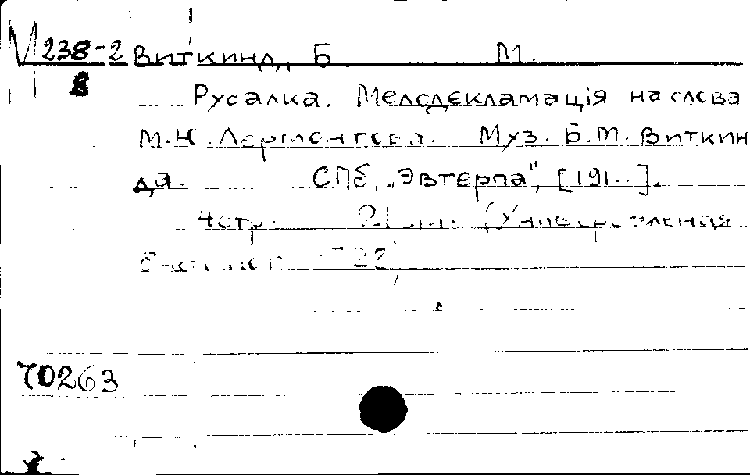 М 238-2 Виткинд, Б. М.
8
Русалка. Мелодекламація на слова
М.Ю. Лермонтова. Муз. Б.М. Виткин
да. СПб, „Эвтерпа", [191..].
4стр. (Универсальная
70263